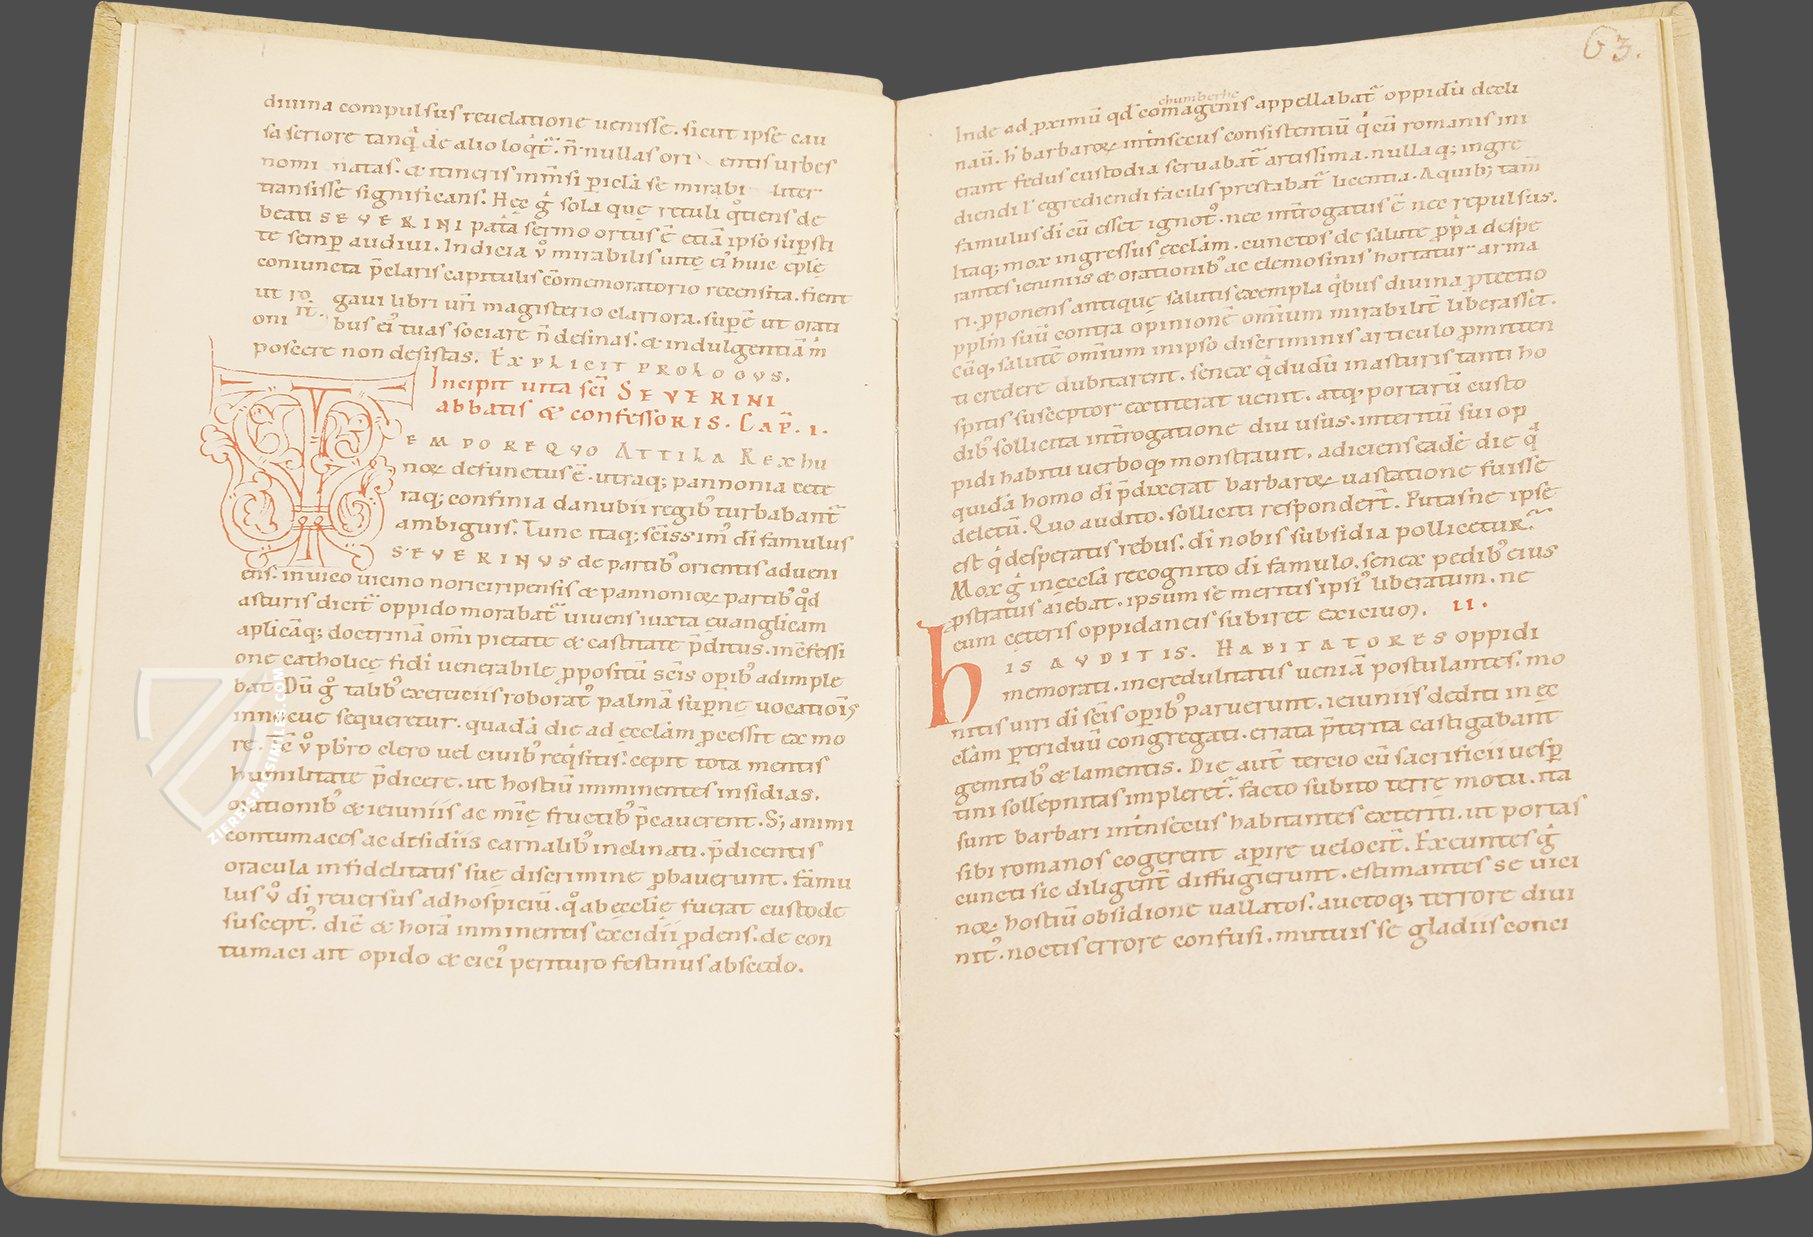 diuina compulsus reuelatione uenisse. sicut ipse cau
sa seriore tanq̄ de alio loq̄t̄. n̄ nullas ori entis urbes
nomi natas. & itineris inm̄si p̲icl̄a se mirabi liter
transisse significans. Hęc g̊ sola quę retuli q̊tiens de
beati SEVERINI pat̄a sermo ortus ē etiā ipso sup̲sti
te semp̲ audiui. Indicia v̊ mirabilis uitę ei' huic ep̄lę
coniuncta p̄claris capitulis cōmemoratorio recensita. fient
ut ro gaui libri ur̄i magisterio clariora. sup̲ē ut orati
oni bus ei' tuas sociare n̄ desinas. & indulgentiā m̊
poscere non desistas. EXPLICIT PROLOGVS.
Incipit uita sc̄i SEVERINI
abbatis & confessoRIS. CAP̄. I.
TEMPORE QVO ATTILA REX hu
noꝝ defunctus ē. utraq; pannonia cete
raq; confinia danubii regib' turbabant̄
ambiguis. Tunc itaq; sc̄issim' di famulus
SEVERINVS de partib' orientis adueni
ens. in uico uicino noriciripensis & pannonioꝝ partib' q̊d
asturis dicit̄ oppido morabat̄ uiuens iuxta euanglicam
aplicāq; doctrinā om̄i pietate & castitate p̄ditus. in cōfessi
one catholicę fidi uenerabile p̲positū sc̄is op̲ib' adimple
bat. Dū g̊ talib' exerciciis roborat' palmā sup̲nę uocatiois
innocue sequeretur. quadā die ad ęcclām p̲cessit ex mo
re. Tē v̊ pb̄ro clero uel ciuib' req̊sitis: cepit tota mentis
humilitate p̄dicere. ut hostiū imminentes insidias.
orationib' & ieiuniis ac mīę fructib' p̄cauerent. S; animi
contumaces ac desidiis carnalib' inclinati. p̄dicentis
oracula infidelitatis suę discrimine p̲bauerunt. famu
lus v̊ di reuersus ad hospiciū. q̊ ab ęcclię fuerat custode
suscept'. diē & horā imminentis excidii p̲dens. de con
tumaci ait opido & cici' perituro festinus abscedo.
63.
chumberhc
Inde ad p̲ximū qd̄ comagenis appellabat̄ oppidū decli
nauī. h̊ barbaroꝝ intrinsecus consistentiū q̊ cū romanis ini
erant fedus custodia seruabat̄ artissima. nulla q; ingre
diendi l' egrediendi facilis prestabat̄ licentia. A quib; tam̄
famulus di cū esset ignot'. nec int̄rogatus ē nec repulsus.
Itaq; mox ingressus ęcclām. cunctos de salute p̲p̊a despe
rantes ieiuniis & orationib' ac elemosinis hortatur arma
ri. p̲ponens antiquę salutis exempla q̊bus diuina p̲tectio
pp̲lm suū contra opinionē omīum mirabilit̄ liberasset.
cūq; salutē omīum in ipso discriminis articulo p̲mitten
ti credere dubitarent. senex q̊ dudū in asturis tanti ho
spitis susceptor extiterat uenit. atq; portarū custo
dib' sollicita int̄rogatione diu usus. interitū sui op
pidi habitu uerboq; monstrauit. adiciens eadē die q̊
quidā homo di p̄dixerat barbaroꝝ uastatione fuisse
deletū. Quo audito. solliciti responder̄t. Putasne ipse
est q̊ desperatis rebus. di nobis subsidia pollicetur.
Mox g̊ in ęcclā recognito di famulo. senex pedib' eius
p̲stratus aiebat. ipsum se meritis ipsi' liberatum. ne
cum ceteris oppidaneis subiret exicium. II.
HIS AVDITIS. HABITATORES oppidi
memorati. incredulitatis ueniā postulantes. mo
nitis uiri di sc̄is op̲ib' paruerunt. ieiuniis dediti in ęc
clām p̲ triduū congregati. errata p̄terita castigabant
gemitib' & lamentis. Die aut̄ tercio cū sacrificii uesp̲
tini sollēpnitas impleret̄. facto subito terrę motu. ita
sunt barbari intrinsecus habitantes exterriti. ut portas
sibi romanos cogerent ap̲ire uelocit̄. Exeuntes g̊
cuncti sic diligent̄ diffugierunt. estimantes se uici
noꝝ hostiū obsidione uallatos: auctoq; terrore diui
nit'. noctis errore confusi. mutuis se gladiis conci
ZIERERFAKSIMILES.COM